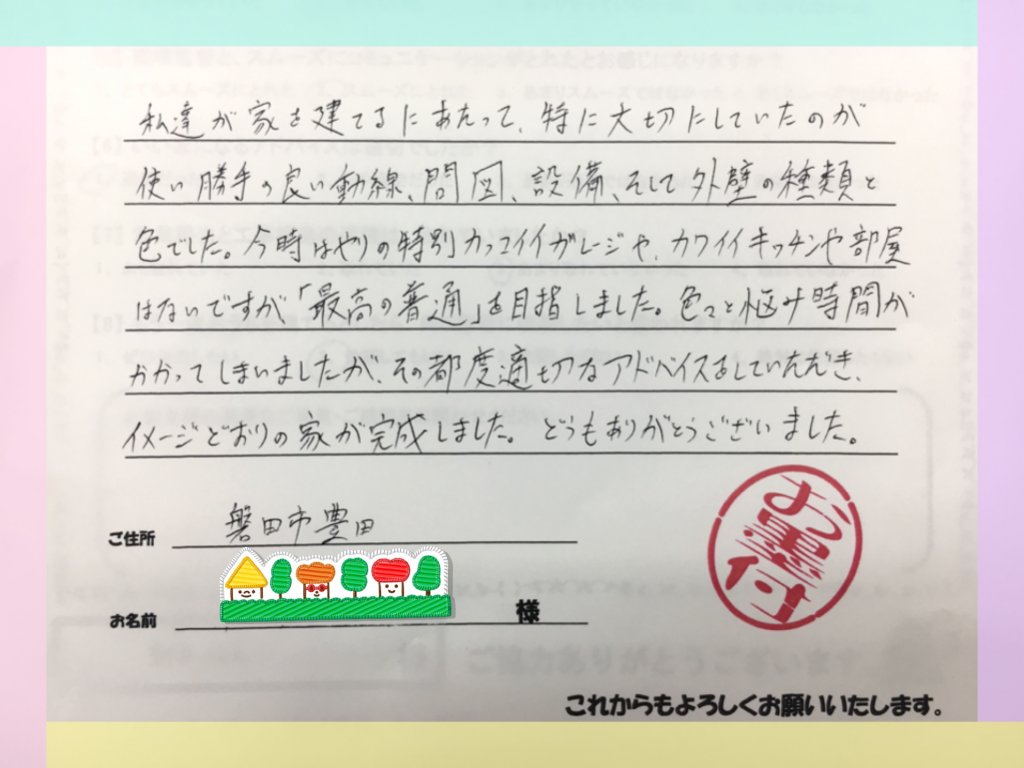 私達が家を建てるにあたって、特に大切にしていたのが
使い勝手の良い動線、間図、設備、そして外壁の種類と
色でした。今時はやりの特別カッコイイガレージや、カワイイキッチンや部屋
はないですが、「最高の普通」を目指しました。色々と悩み時間が
かかってしまいましたが、その都度適切なアドバイスをしていただき、
イメージどおりの家が完成しました。どうもありがとうございました。
ご住所 磐田市豊田
お名前 様
お墨付
ご協力ありがとうございます
これからもよろしくお願いいたします。